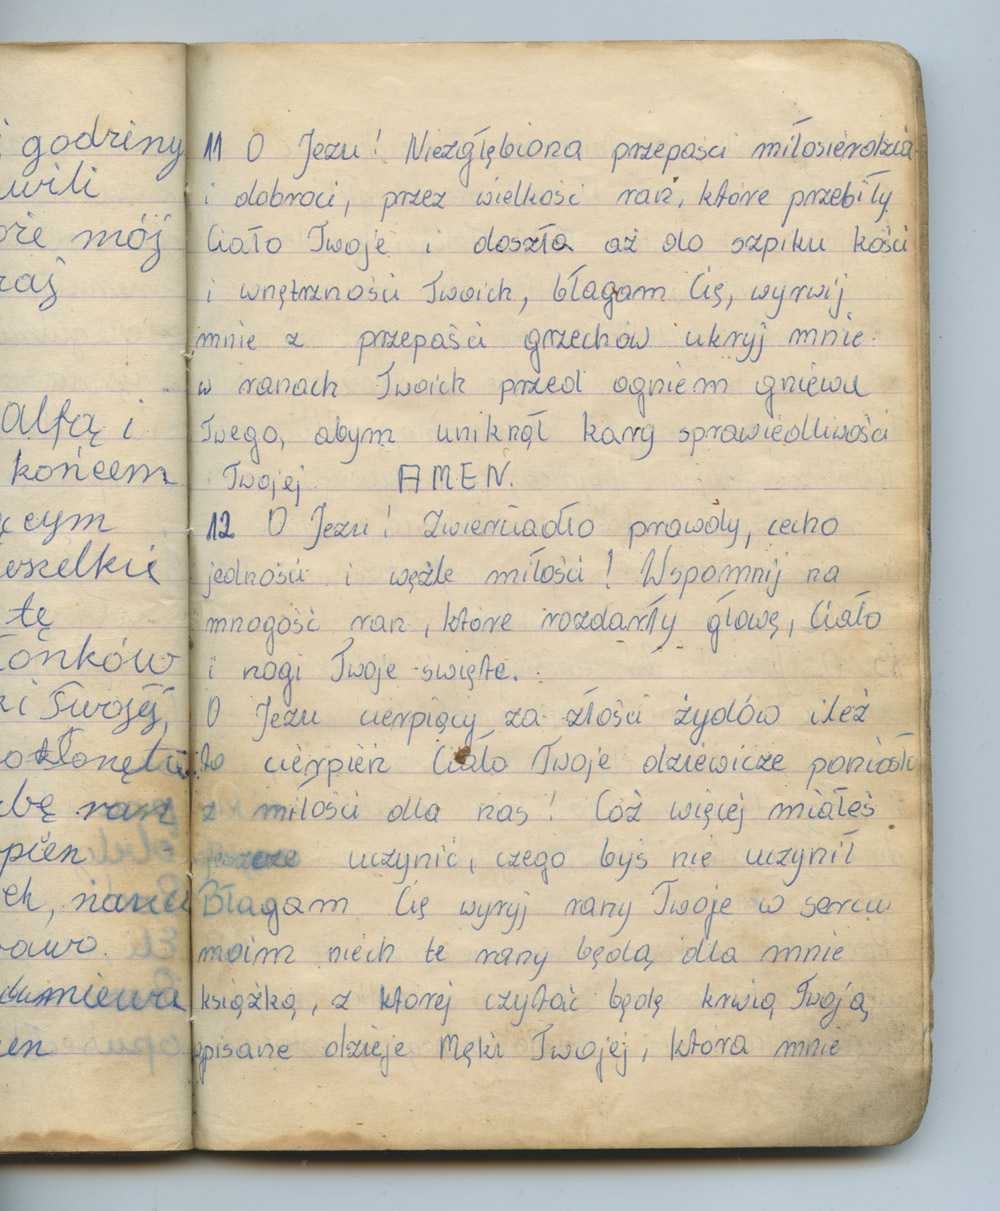 i godziny
wili
oże mój
raj
Alfą i
końcem
ącym
wszelkie
tę
łonków
ki Twojej,
otkłonęła
bę ran
pień
ch, naucz
rawo.
umiewa
en
11 O Jezu! Niezgłębiona przepaści miłosierdzia
i dobroci, przez wielkość ran, które przebiły
Ciało Twoje i doszła aż do szpiku kości
i wnętrzności Twoich, błagam Cię, wyrwij
mnie z przepaści grzechów ukryj mnie
w ranach Twoich przed ogniem gniewu
Twego, abym uniknął kary sprawiedliwości
Twojej AMEN.
12 O Jezu! Zwierciadło prawdy, cecho
jedności i węźle miłości! Wspomnij na
mnogość ran, które rozdarły głowę, Ciało
i nogi Twoje święte.
O Jezu cierpiący za złości żydów ileż
to cierpień Ciało Twoje dziewicze poniosło
z miłości dla nas! Cóż więcej miałeś
jeszcze uczynić, czego byś nie uczynił
Błagam Cię wyryj rany Twoje w sercu
moim niech te rany będą dla mnie
książką, z której czytać będę krwią Twoją
spisane dzieje Męki Twojej, która mnie